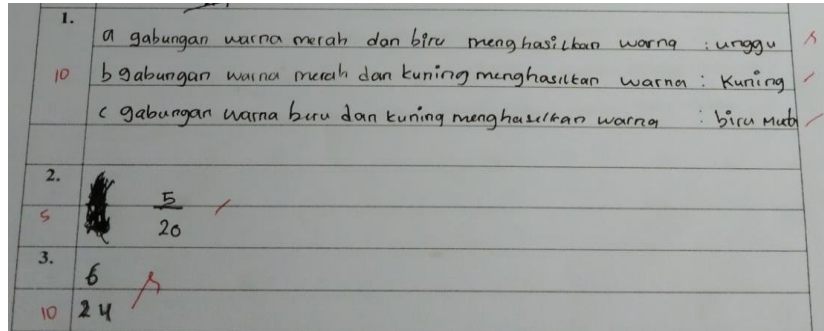 1.
a gabungan warna merah dan biru menghasilkan warna : unggu
10 b gabungan warna merah dan kuning menghasilkan warna : Kuning
c gabungan warna buru dan kuning menghaselkan warna : biru Mud
2.
5
20
5
3.
6
10 24